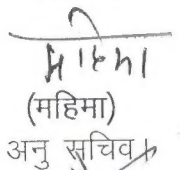 महिमा
(महिमा)
अनु सचिव